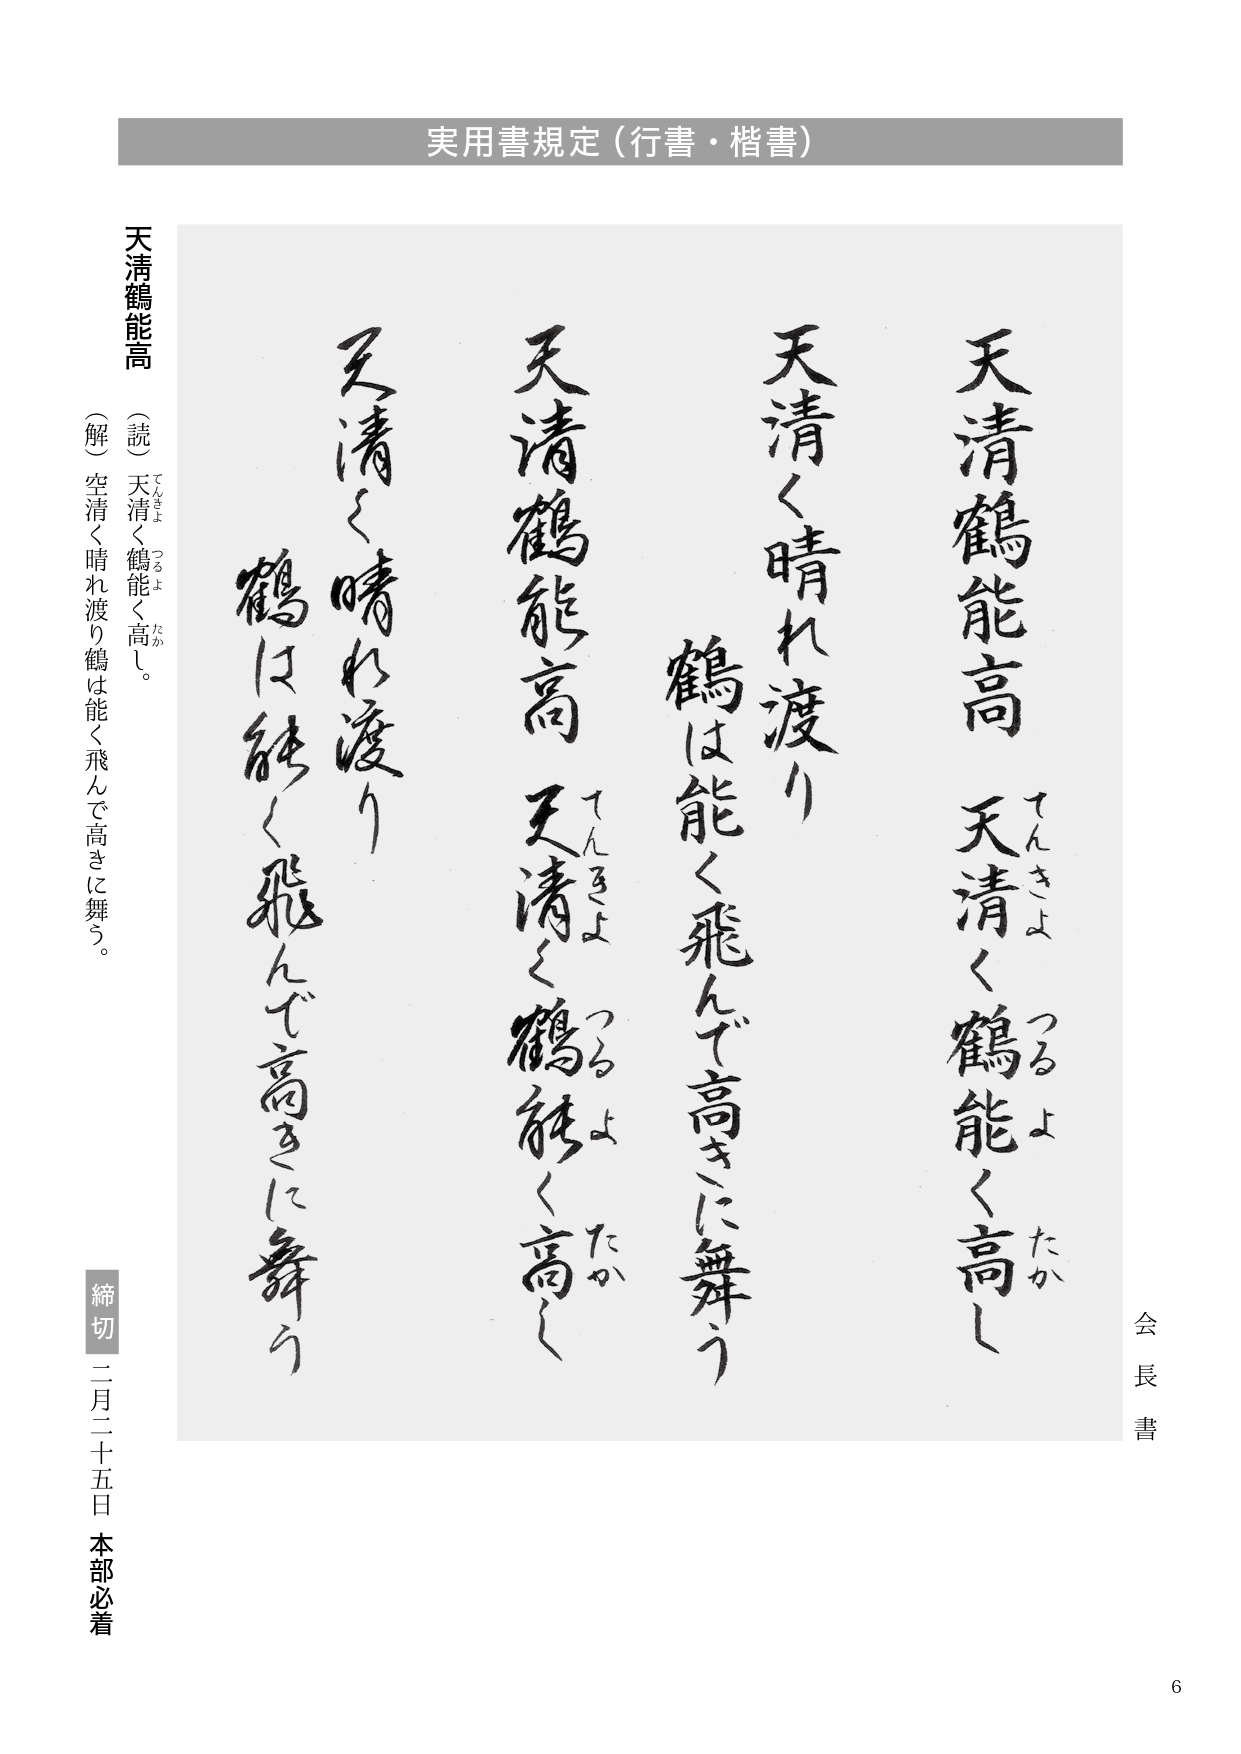 実用書規定（行書・楷書）
会長書
天清鶴能高　天清く鶴能く高し
てんきよ　つる　よ　たか
天清く晴れ渡り
鶴は能く飛んで高きに舞う
天清鶴能高　天清く鶴能く高し
てんきよ　つる　よ　たか
天清く晴れ渡り
鶴は能く飛んで高きに舞う
天淸鶴能高
（読）天清く鶴能く高し。
てんきよ　つるよ　たか
（解）空清く晴れ渡り鶴は能く飛んで高きに舞う。
締切　二月二十五日　本部必着
6